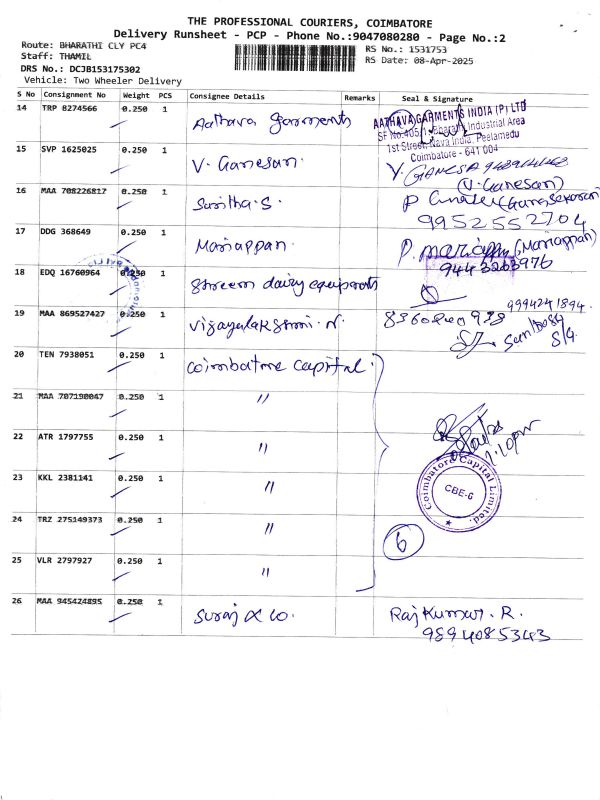 THE PROFESSIONAL COURIERS, COIMBATORE
Delivery Runsheet - PCP - Phone No.:9047080280 - Page No.:2
Route: BHARATHI CLY PC4 RS No.: 1531753
Staff: THAMIL RS Date: 08-Apr-2025
DRS No.: DCJB153175302
Vehicle: Two Wheeler Delivery
S No Consignment No Weight PCS Consignee Details Remarks Seal & Signature
14 TRP 8274566 0.250 1 Aathava garments
AATHAVA GARMENTS INDIA (P) LTD
SF No.405/1, Bharathi Industrial Area
1st Street, Nava India, Peelamedu
Coimbatore - 641 004
15 SVP 1625025 0.250 1 V. Ganesan.
(V. Ganesan)
16 MAA 708226817 0.250 1 Sunitha. S.
9952552704
17 DDG 368649 0.250 1 Mariappan. P. (Mariappan)
9443263976
18 EDQ 16760964 0.250 1 Shreem dairy equipments
9994241894
19 MAA 869527427 0.250 1 Vijayalakshmi. N. 8360840938
20 TEN 7938051 0.250 1 Coimbatore capital.
21 MAA 707190047 0.250 1 "
22 ATR 1797755 0.250 1 "
1:10pm
23 KKL 2381141 0.250 1 "
Coimbatore Capital Limited.
CBE-6
24 TRZ 275149373 0.250 1 "
6
25 VLR 2797927 0.250 1 "
26 MAA 945424895 0.250 1 Suraj & co. Raj Kumar. R.
9894085343